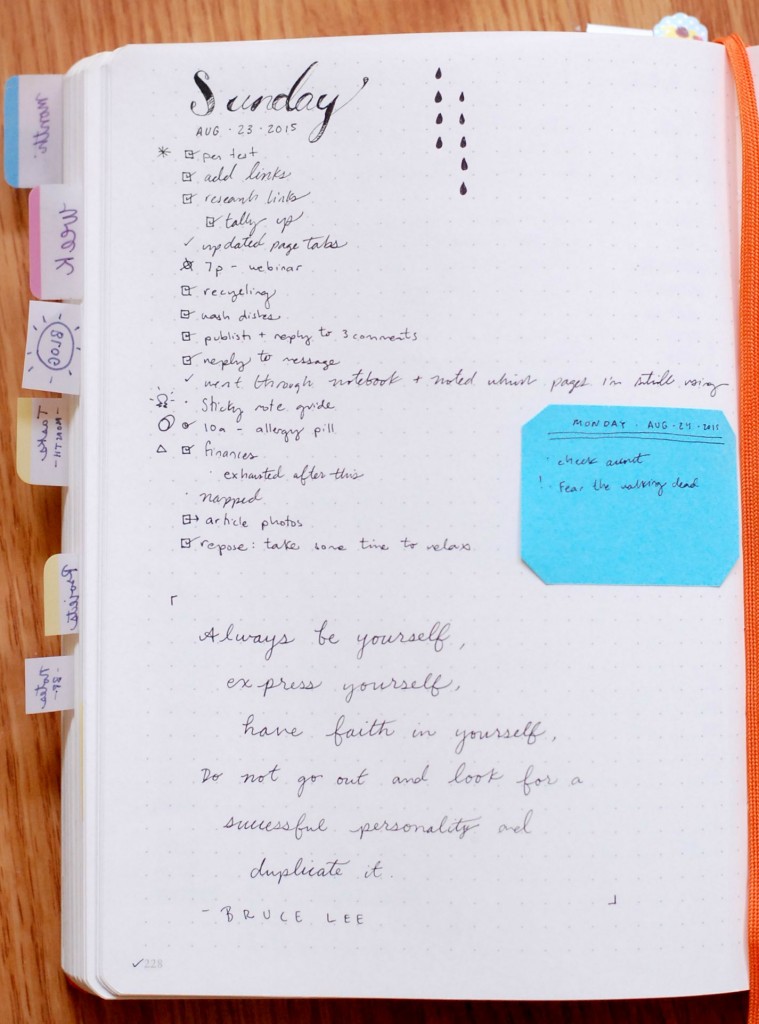 Sunday
AUG · 23 · 2015
pen test
add links
research links
tally up
updated page tabs
7p - webinar
recycling
wash dishes
publish + reply to 3 comments
reply to message
went through notebook + noted which pages i'm still using
Sticky note guide
10a - allergy pill
finances
exhausted after this
napped
article photos
repose: take some time to relax
MONDAY · AUG · 24 · 2015
check
! Fear the walking dead
Always be yourself,
express yourself,
have faith in yourself,
Do not go out and look for a
successful personality and
duplicate it.
- BRUCE LEE
228
month
Week
BLOG
Tasks
-MONTH-
Projects
Notes